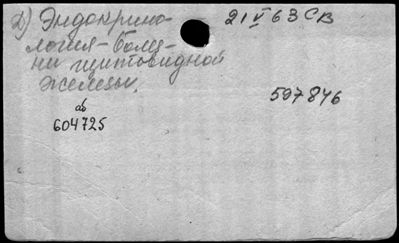 2) Эндокрино-
логия - болез-
ни щитовидной
железы.
21 V 63 СВ
597846
ab
604725